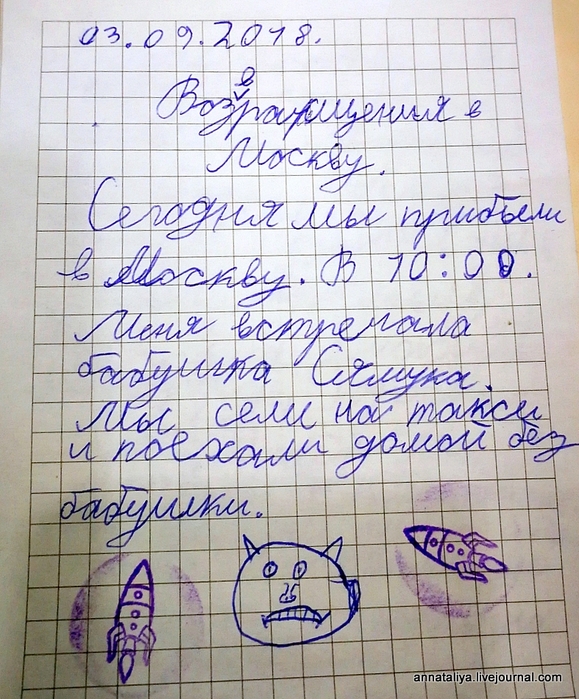 03.09.2018.
Возвращения в
Москву.
Сегодня мы прибыли
в Москву. В 10:00.
Меня встречала
бабушка Сямука.
Мы сели на такси
и поехали домой без
бабушки.
annataliya.livejournal.com